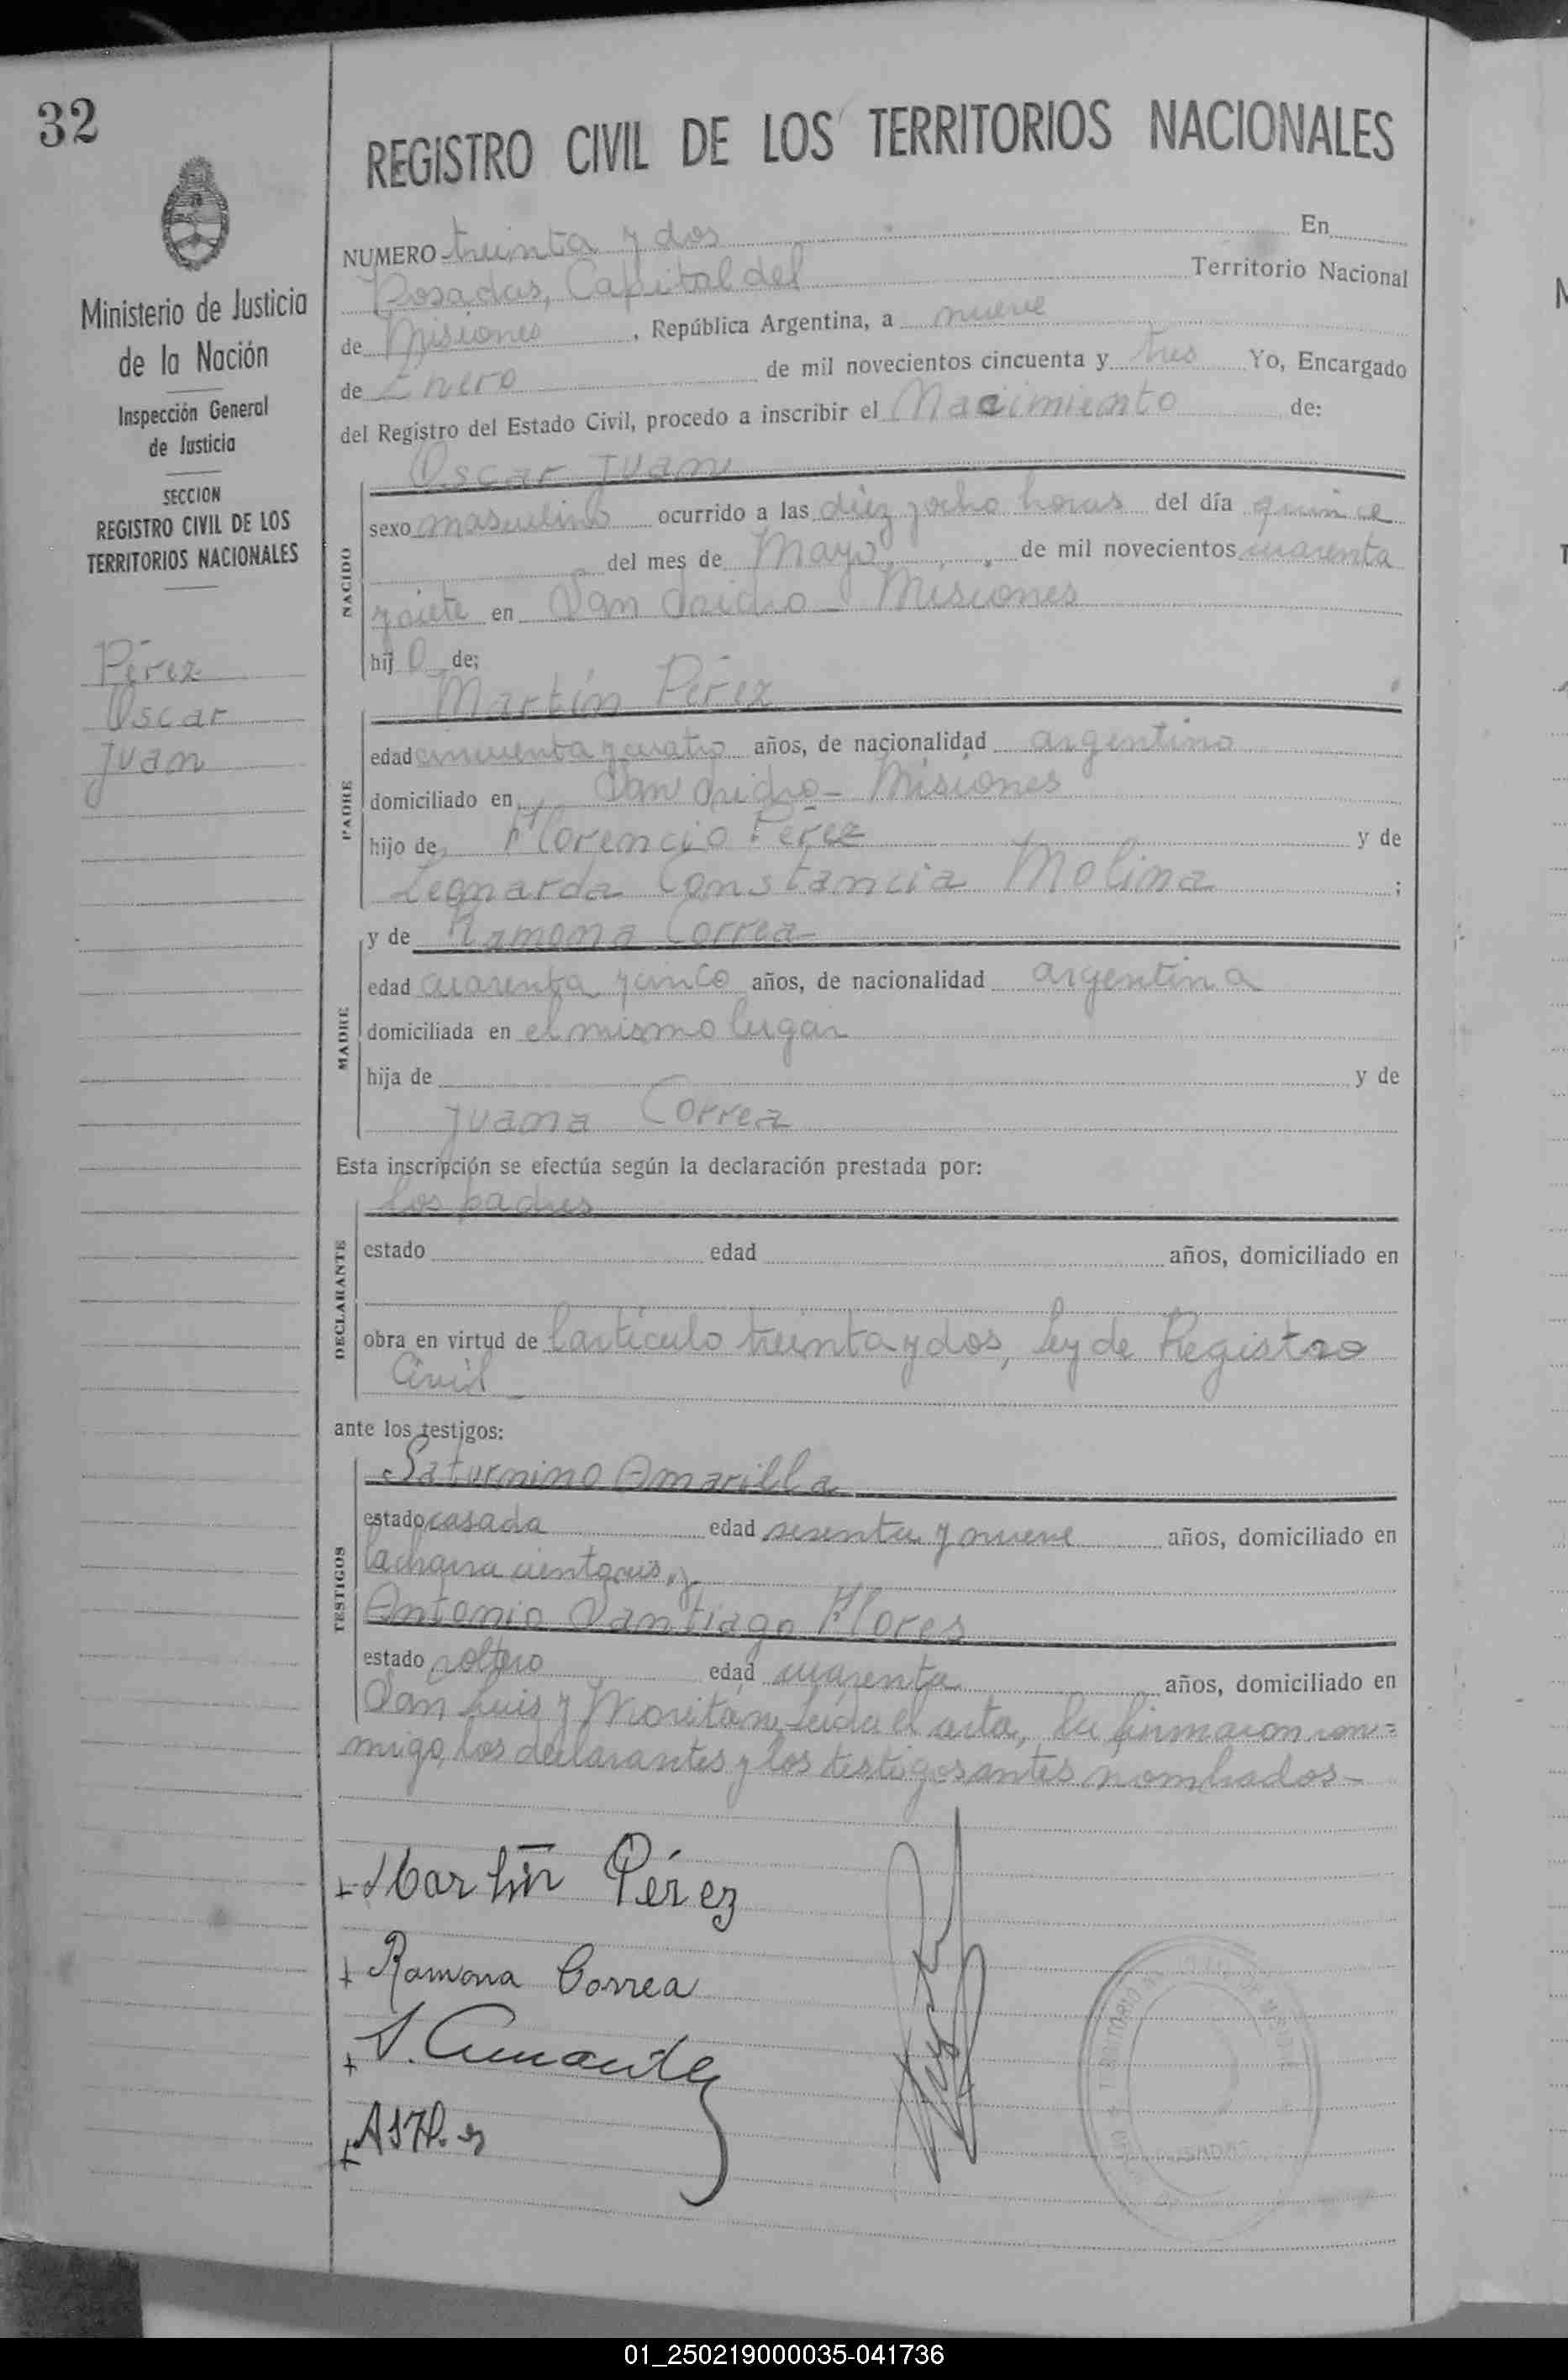 32
Ministerio de Justicia
de la Nación
Inspección General
de Justicia
SECCION
REGISTRO CIVIL DE LOS
TERRITORIOS NACIONALES
Pérez
Oscar
Juan
REGISTRO CIVIL DE LOS TERRITORIOS NACIONALES
NUMERO treinta y dos En
Posadas, Capital del Territorio Nacional
de Misiones, República Argentina, a nueve
de Enero de mil novecientos cincuenta y tres Yo, Encargado
del Registro del Estado Civil, procedo a inscribir el Nacimiento de:
Oscar Juan
NACIDO
sexo masculino ocurrido a las diez y ocho horas del día quince
del mes de Mayo de mil novecientos cuarenta
y siete en San Isidro - Misiones
hij o de;
Martín Pérez
PADRE
edad cincuenta y cuatro años, de nacionalidad argentino
domiciliado en San Isidro - Misiones
hijo de Florencio Pérez y de
Leonarda Constancia Molina ;
y de Ramona Correa
MADRE
edad cuarenta y cinco años, de nacionalidad argentina
domiciliada en el mismo lugar
hija de y de
Juana Correa
Esta inscripción se efectúa según la declaración prestada por:
los padres
DECLARANTE
estado edad años, domiciliado en
obra en virtud de l artículo treinta y dos, ley de Registro
Civil
ante los testigos:
Saturnino Amarilla
TESTIGOS
estado casada edad sesenta y nueve años, domiciliado en
la chacra y
Antonio Santiago Flores
estado soltero edad cuarenta años, domiciliado en
San Luis y Leída el acta, la firmaron con=
migo, los declarantes y los testigos antes nombrados -
Martín Pérez
Ramona Correa
POSADAS
01_250219000035-041736